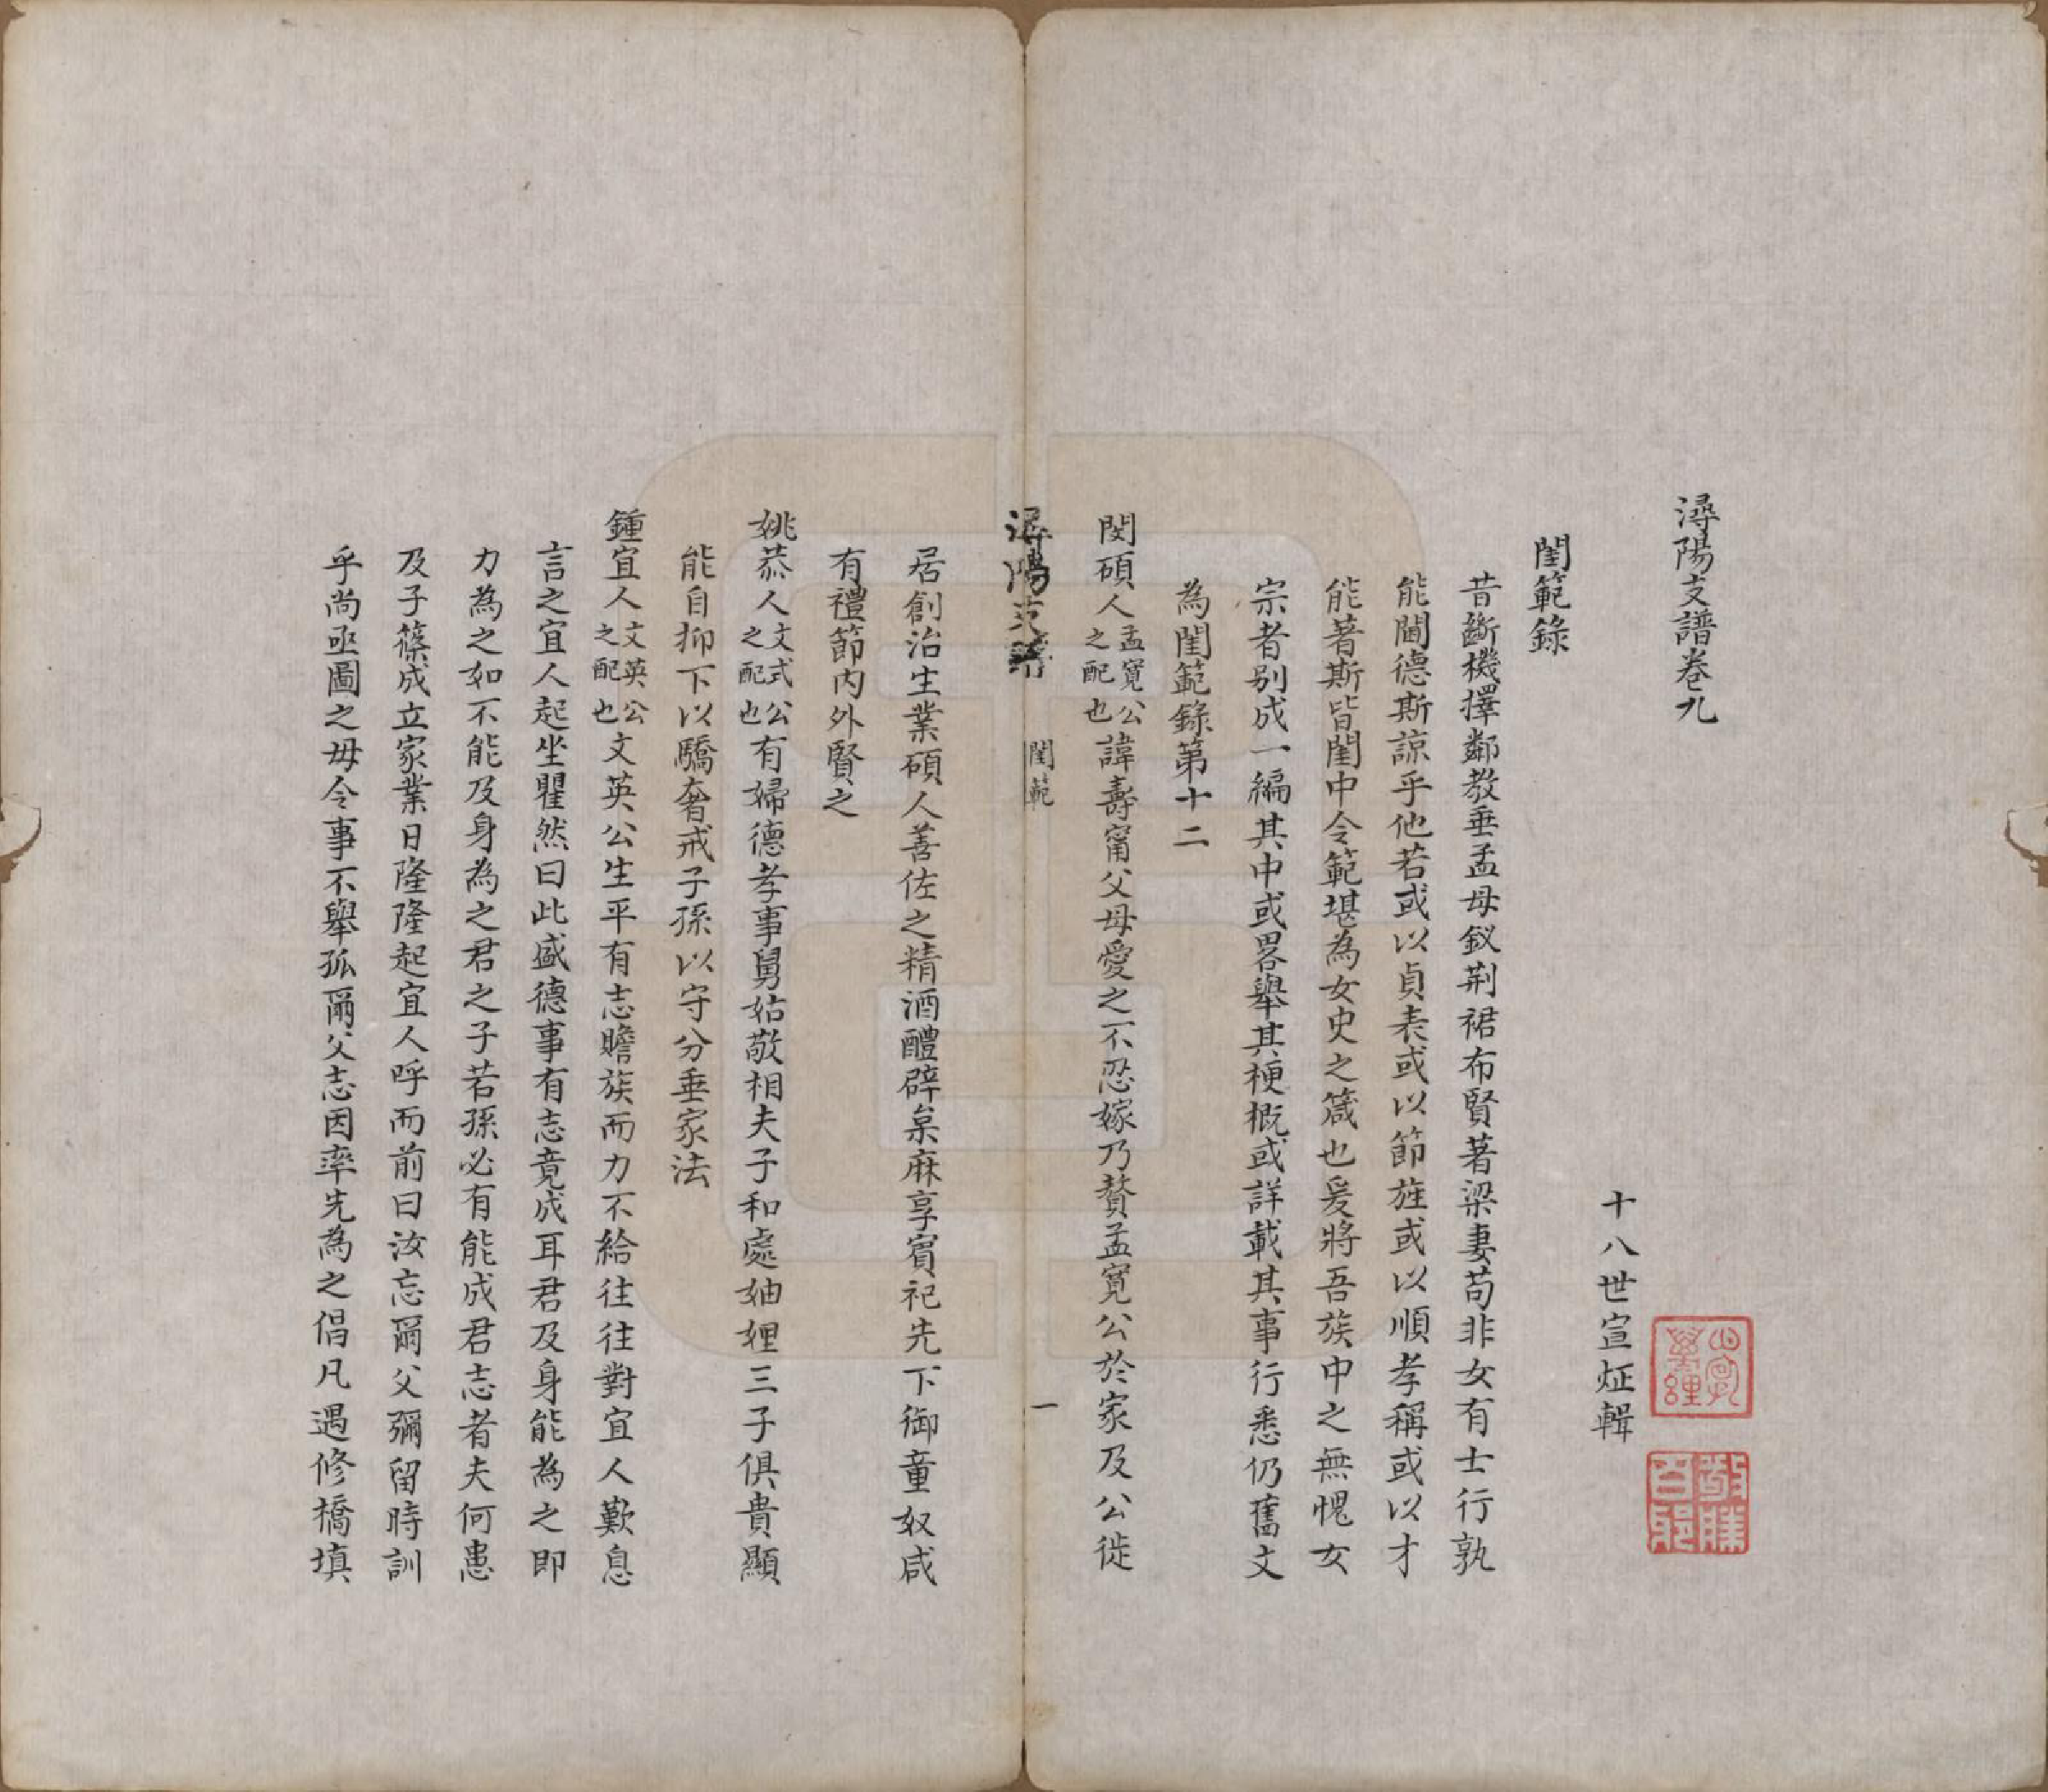 潯陽支譜卷九
十八世宣炡輯
閨範錄
昔斷機擇鄰教垂孟母釵荆裙布賢著梁妻苟非女有士行孰
能閫德斯諒乎他若或以貞表或以節旌或以順孝稱或以才
能著斯皆閨中令範堪為女史之箴也爰將吾族中之無愧女
宗者別成一編其中或畧舉其梗概或詳載其事行悉仍舊文
為閨範錄第十二
閔碩人孟寬公之配也諱壽甯父母愛之不忍嫁乃贅孟寬公於家及公徙
潯陽支譜 閨範 一
居創治生業碩人善佐之精酒醴辟枲麻享賓祀先下御童奴咸
有禮節内外賢之
姚恭人文式公之配也有婦德孝事舅姑敬相夫子和處妯娌三子俱貴顯
能自抑下以驕奢戒子孫以守分垂家法
鍾宜人文英公之配也文英公生平有志贍族而力不給往往對宜人歎息
言之宜人起坐瞿然曰此盛德事有志竟成耳君及身能為之即
力為之如不能及身為之君之子若孫必有能成君志者夫何患
及子篠成立家業日隆隆起宜人呼而前曰汝忘爾父彌留時訓
乎尚亟圖之毋令事不舉孤爾父志因率先為之倡凡遇修橋填